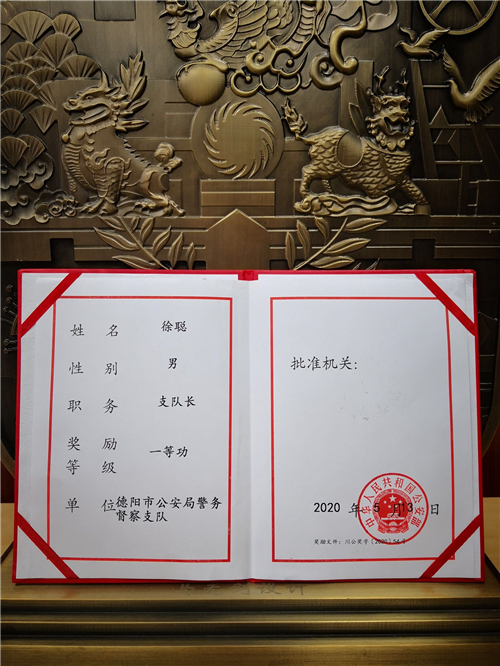 姓 名 徐聪
性 别 男
职 务 支队长
奖 励
等 级 一等功
单 位 德阳市公安局警务
督察支队
批准机关：
中华人民共和国公安部
2020 年 5 月 13 日